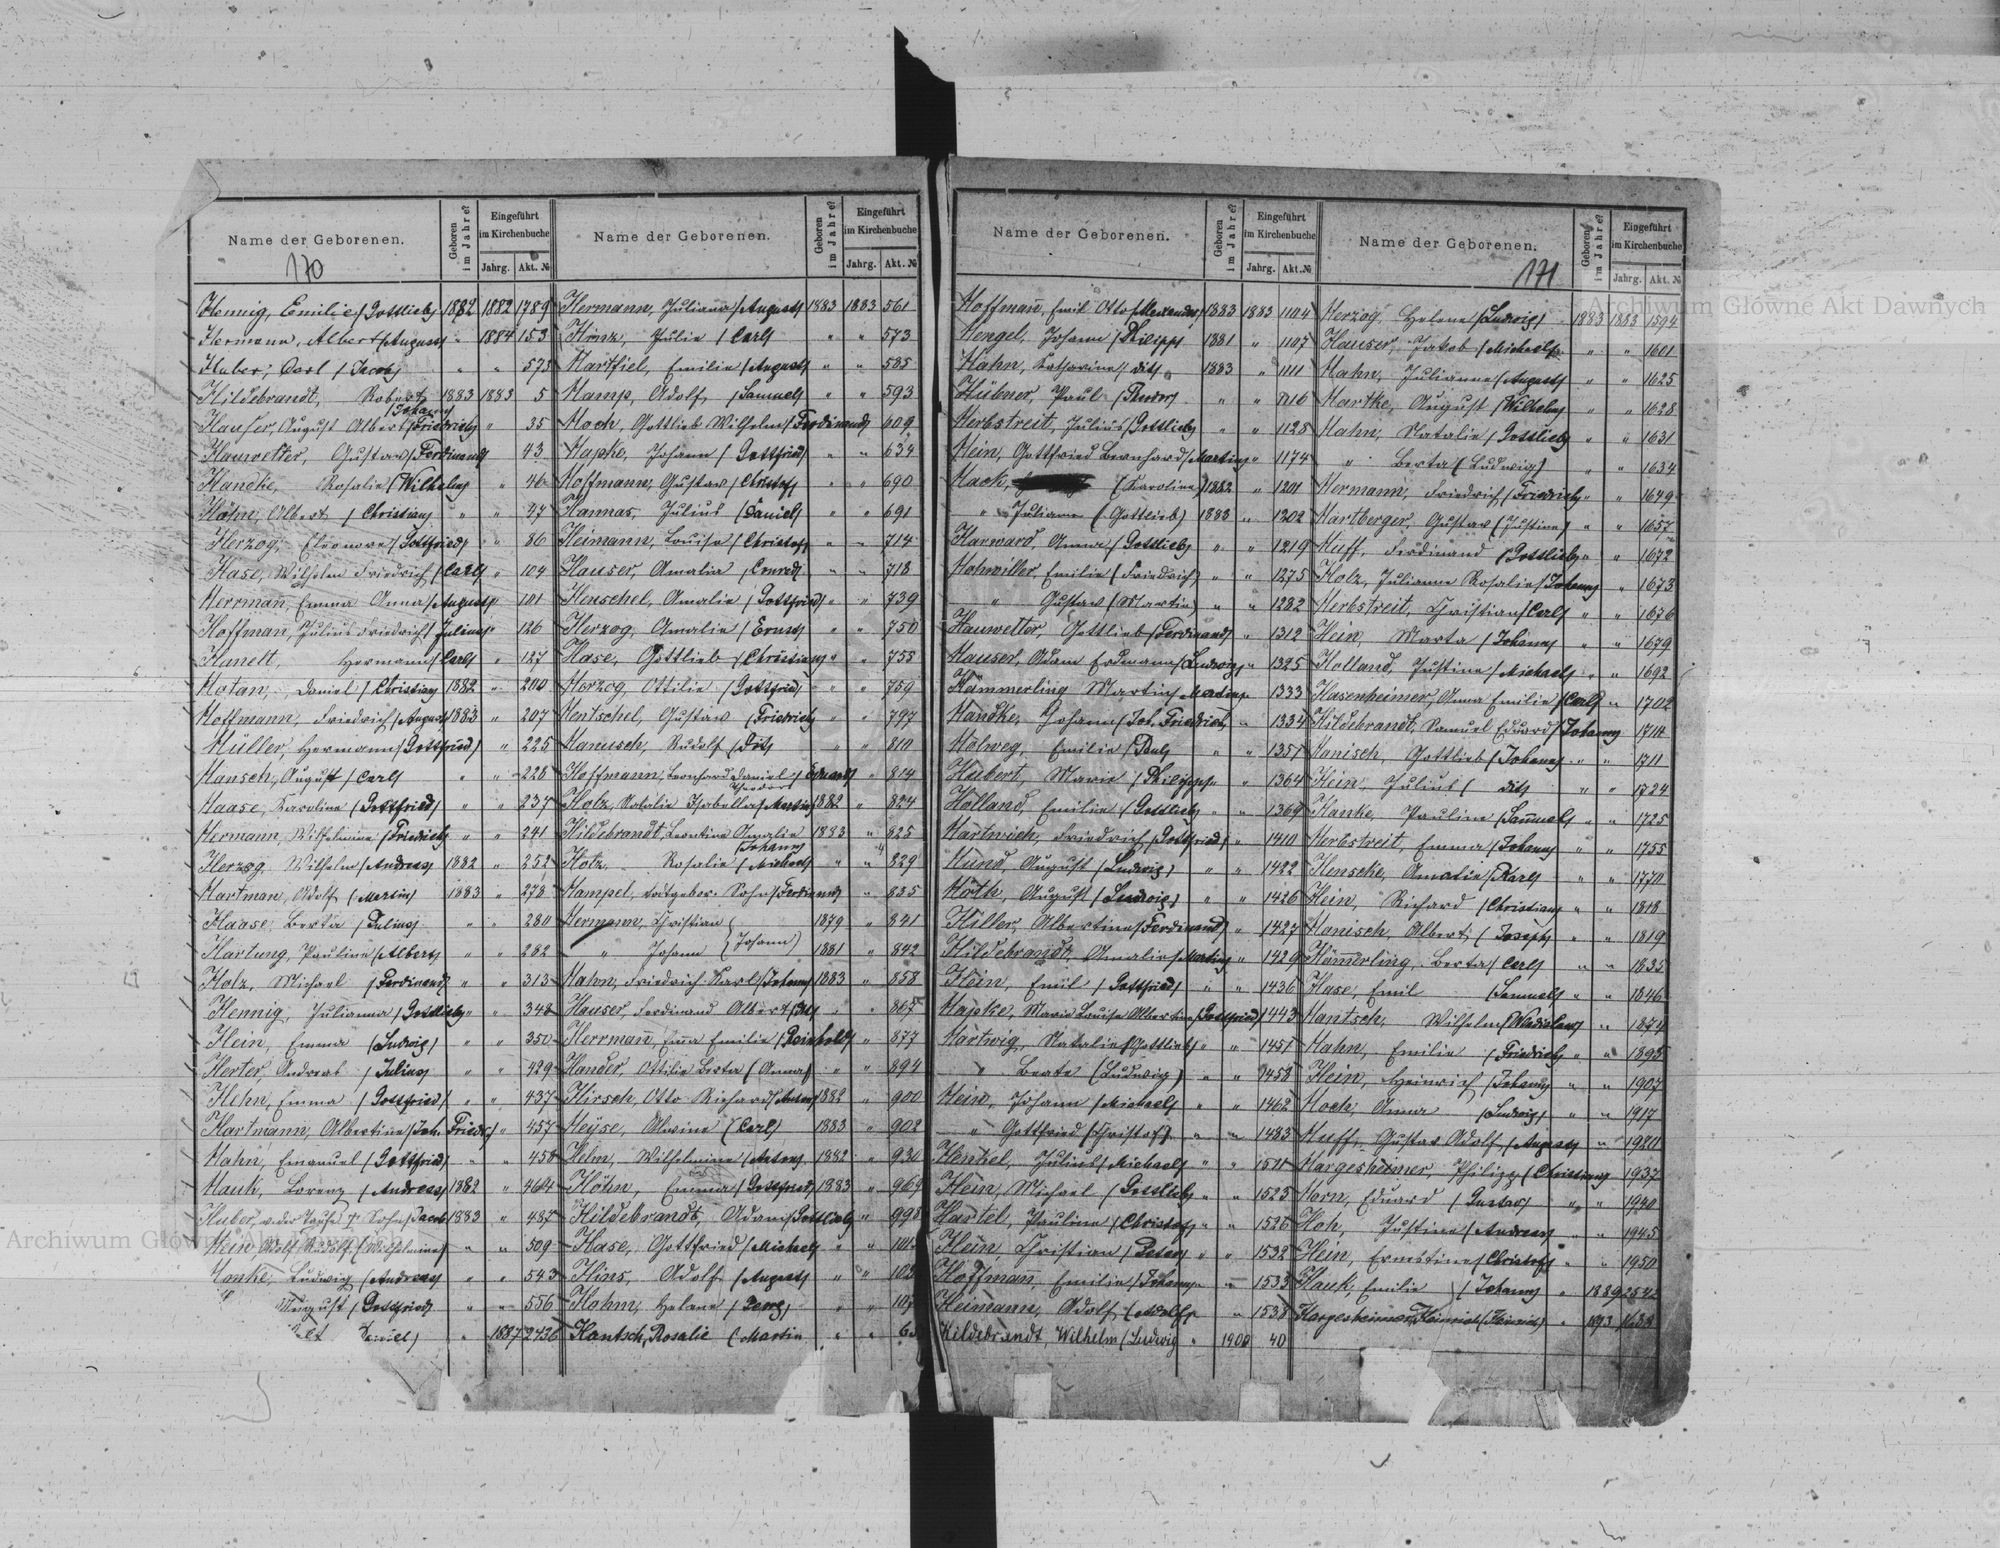 Name der Geborenen.
Geboren im Jahre?
Eingeführt im Kirchenbuche
Jahrg. Akt. №
170
Hennig, Emilie (Gottlieb) 1882 1882 1789
Hermann, Albert (August) " 1884 153
Huber, Carl (Jacob) " " 573
Hildebrandt, Robert (Johann) 1883 1883 5
Hauser, August Albert (Friedrich) " 35
Hauwetter, Gustav (Ferdinand) " 43
Handke, Rosalie (Wilhelm) " 46
Höhn, Albert (Christian) " " 47
Herzog, Eleonore (Gottfried) " " 86
Hase, Wilhelm Friedrich (Carl) " 104
Herrmañ, Emma Anna (August) " 101
Hoffman, Julius Friedrich (Julius) " 126
Hermann (Carl) " 127
Hotan, Daniel (Christian) 1882 " 200
Hoffmann, Friedrich (August) 1883 " 207
Müller, Hermann (Gottfried) " 225
Hansch, August (Carl) " " 228
Haase, Karoline (Gottfried) " " 237
Hermann, Wilhelmine (Friedrich) " " 241
Herzog, Wilhelm (Andreas) 1882 " 252
Hartman, Adolf (Martin) 1883 " 278
Haase, Berta (Julius) " " 280
Hartung, Pauline (Albert) " " 282
Holz, Michael (Ferdinand) " " 313
Hennig, Julianna (Gottlieb) " " 348
Hein, Emma (Ludwig) " " 350
Herter, Andreas (Julius) " " 429
Hehn, Emma (Gottfried) " " 437
Hartmann, Albertine (Joh. Friedr.) " 457
Hahn, Emanuel (Gottfried) " " 458
Hauk, Lorenz (Andreas) 1882 " 464
Huber, Sohn (Jacob) 1883 " 487
Hein, Adolf Rudolf (Wilhelmine) " " 509
Hanke, Ludwig (Andreas) " " 543
" August (Gottfried) " " 556
" 1887 2436
Name der Geborenen.
Geboren im Jahre?
Eingeführt im Kirchenbuche
Jahrg. Akt. №
Hermann, Juliana (August) 1883 1883 561
Hinz, Julie (Carl) " " 573
Hartfiel, Emilie (August) " " 585
Hamp, Adolf (Samuel) " " 593
Hoch, Gottlieb Wilhelm (Ferdinand) 609
Hapke, Johann (Gottfried) " " 634
Hoffmann, Gustav (Christof) " " 690
Hannas, Julius (Daniel) " " 691
Heimann, Louise (Christof) " " 714
Hauser, Amalia (Conrad) " " 718
Henschel, Amalie (Gottfried) " " 739
Herzog, Amalie (Ernst) " " 750
Hase, Gottlieb (Christian) " " 755
Herzog, Ottilie (Gottfried) " " 759
Hentschel, Gustav (Friedrich) " " 797
Hanusch, Rudolf (Dito) " " 810
Hoffmann, Leonhard Daniel Theodor (Eduard) " 814
Holz, Natalie Isabella (Martin) 1882 " 824
Hildebrandt, Leontine Amalie (Johann) 1883 " 825
Hotz, Rosalie (Michael) " " 829
Hampel, todtgebor. Sohn (Ferdinand) " 835
Hermann, Christian 1879 " 841
" Johann (Johann) 1881 " 842
Hahn, Friedrich Karl (Johann) 1883 " 858
Hauser, Ferdinand Albert " " 867
Herrmañ, Em̃a Emilie (Reinhold) " 877
Hander, Ottilie Berta (Anna) " " 894
Hirsch, Otto Richard (Anton) 1882 " 900
Heyse, Alwine (Carl) 1883 " 902
Hehn, Wilhelmine (Anton) 1882 " 930
Höhn, Emma (Gottfried) 1883 " 969
Hildebrandt, Adam (Gottlieb) " 998
Hase, Gottfried (Michel) " "
Hins, Adolf (August) " "
Hohm, Helene (Georg) " "
Hantsch, Rosalie (Martin " "
Name der Geborenen.
Geboren im Jahre?
Eingeführt im Kirchenbuche
Jahrg. Akt. №
Hoffmañ, Emil Otto (Alexander) 1883 1883 1104
Hengel, Johann (Philipp) 1881 " 1107
Hahn, Katharine (dito) 1883 " 1111
Hübner, Paul " " 1116
Herbstreit, Julius (Gottlieb) " " 1125
Hein, Gottfried Bernhard (Martin) " 1174
Hack, (Karoline) 1882 " 1201
" Juliane (Gottlieb) 1883 " 1202
Harward, Anna (Gottlieb) " " 1219
Hohwiller, Emilie (Friedrich) " " 1275
" Gustav (Martin) " " 1282
Hauwetter, Gottlieb (Ferdinand) " 1312
Hauser, Adam Erdmann (Ludwig) " 1325
Hämmerling Martin (Martin) " 1333
Handke, Johann (Joh. Friedrich) " 1334
Holweg, Emilie (Paul) " " 1351
Hubert, Marie (Philipp) " " 1364
Holland, Emilie (Gottlieb) " " 1369
Hartwich, Friedrich (Gottfried) " 1410
Hund, August (Ludwig) " " 1422
Hoth, August (Ludwig) " " 1426
Hiller, Albertine (Ferdinand) " 1427
Hildebrandt, Amalie (Martin) " 1429
Hein, Emil (Gottfried) " " 1436
Hapke, Marie Louise Albertine (Gottfried) 1443
Hartwig, Natalie (Gottlieb) " " 1451
" Beate (Ludwig) " " 1458
Hein, Johann (Michael) " " 1462
" Gottfried (Christof) " " 1483
Henkel, Julius (Michael) " " 1511
Hein, Michael (Gottlieb) " " 1525
Hartel, Pauline (Christof) " " 1526
Hein, Christian (Peter) " " 1532
Hoffmañ, Emilie (Johann) " " 1533
Heimann, Adolf (Adolf) " 1538
Hildebrandt, Wilhelm (Ludwig " 1900 40
Name der Geborenen.
Geboren im Jahre?
Eingeführt im Kirchenbuche
Jahrg. Akt. №
171
Herzog, Helene (Ludwig) 1883 1883 1594
Hauser, Jakob (Michael) " " 1601
Hahn, Julianne (August) " " 1625
Hartke, August (Wilhelm) " " 1628
Hahn, Natalie (Gottlieb) " " 1631
" Berta (Ludwig) " " 1634
Hermann, Friedrich (Friedrich) " " 1649
Hartberger, Gustav (Justine) " " 1657
Huff, Ferdinand (Gottlieb) " " 1672
Holz, Julianne Rosalie (Johann) " 1673
Herbstreit, Christian (Carl) " " 1676
Hein, Marta (Johann) " " 1679
Holland, Justine (Michael) " " 1692
Hasenheimer, Anna Emilie (Carl) " 1702
Hildebrandt, Samuel Eduard (Johann) 1710
Hanisch, Gottlieb (Johann) " " 1711
Hein, Julius (dito) " " 1724
Hanke, Pauline (Samuel) " " 1725
Herbstreit, Emma (Johann) " " 1755
Henschke, Amalie (Karl) " " 1770
Hein, Richard (Christian) " " 1818
Hanisch, Albert (Joseph) " " 1819
Häm̃erling, Berta (Carl) " " 1835
Hase, Emil (Samuel) " " 1846
Hantsch, Wilhelm (Wladislaw) " " 1874
Hahn, Emilie (Friedrich) " " 1895
Hein, Heinrich (Johann) " " 1907
Hoch, Anna (Ludwig) " " 1917
Huff, Gustav Adolf (August) " 1920
Hargesheimer, Philipp (Christian) 1937
Horn, Eduard (Gustav) " " 1940
Hoh, Justine (Andreas) " " 1945
Hein, Ernestine (Christof) " " 1950
Hauk, Emilie (Johann) " 1889
Hargesheimer, Heinrich (Heinrich) " 1893
Archiwum Główne Akt Dawnych
Archiwum Główne Akt Dawnych